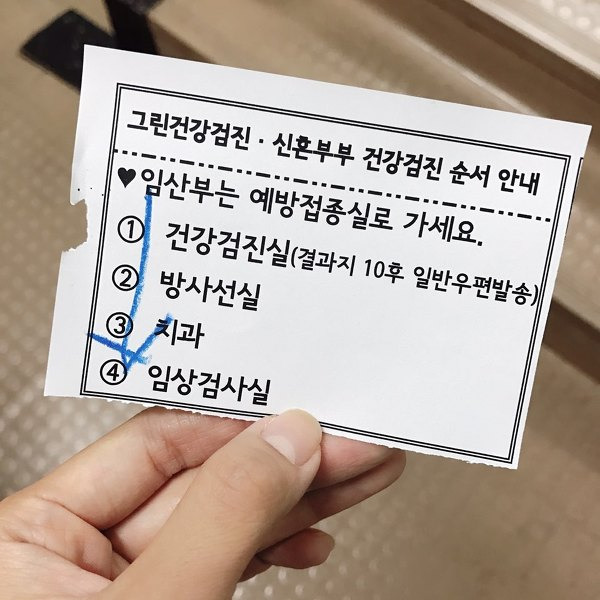 그린건강검진 · 신혼부부 건강검진 순서 안내
♥임산부는 예방접종실로 가세요.
① 건강검진실(결과지 10후 일반우편발송)
② 방사선실
③ 치과
④ 임상검사실